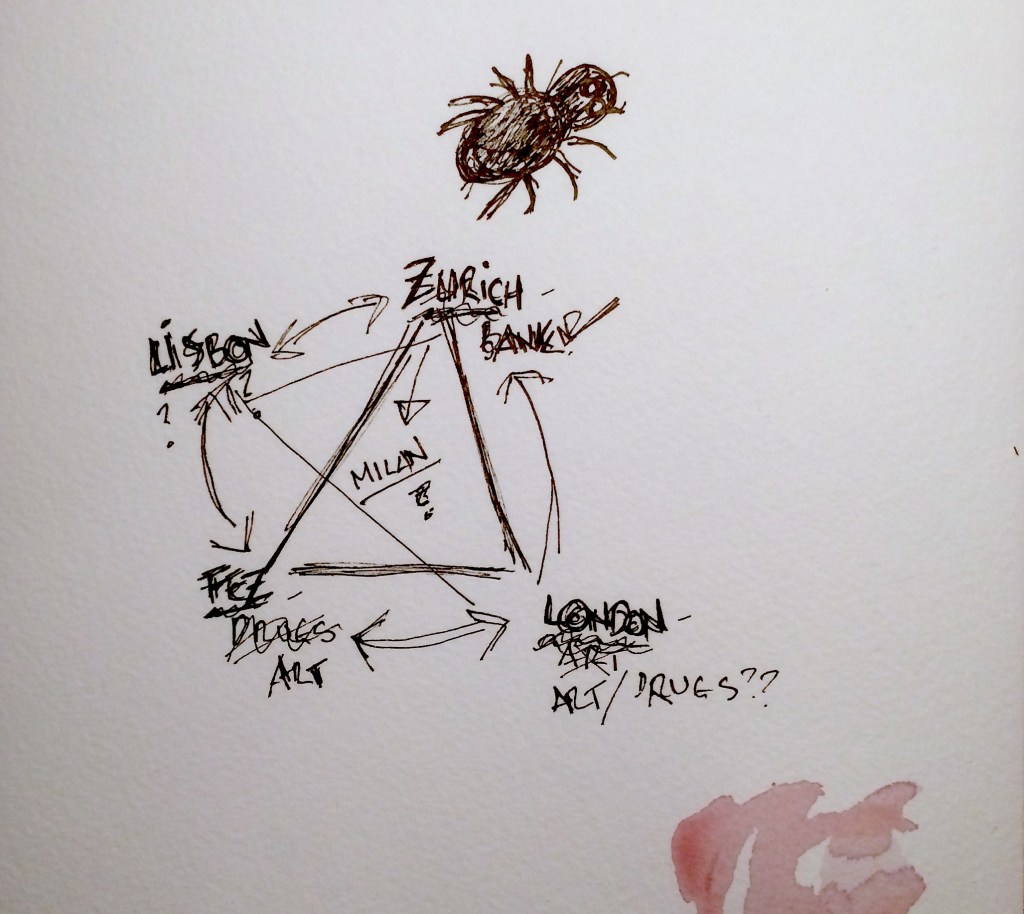 ZURICH -
LISBON
BANK?
?
?
MILAN
?
FEZ -
DRUGS
ART
LONDON -
ART
ART/DRUGS??